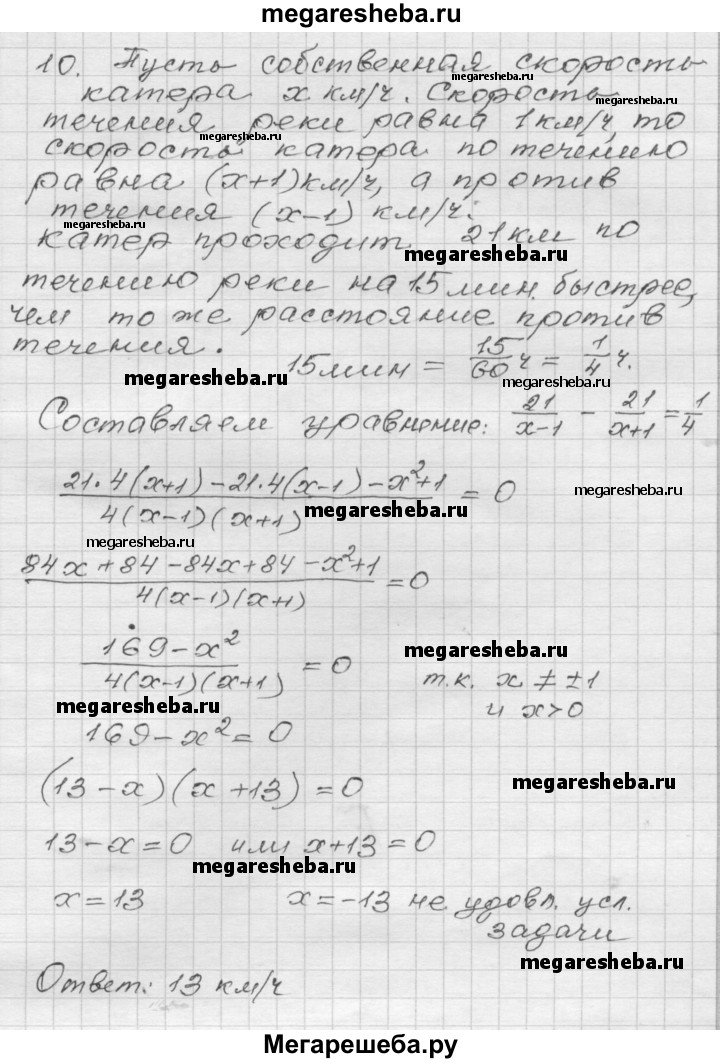 megaresheba.ru
10. Пусть собственная скорость
megaresheba.ru
катера x км/ч. Скорость
megaresheba.ru
течения реки равна 1 км/ч, то
megaresheba.ru
скорость катера по течению
равна (x+1) км/ч, а против
течения (x-1) км/ч.
megaresheba.ru
катер проходит 21 км по
megaresheba.ru
течению реки на 15 мин. быстрее,
чем то же расстояние против
течения.
15 мин = 15/60 ч = 1/4 ч.
megaresheba.ru megaresheba.ru
Составляем уравнение: 21/(x-1) - 21/(x+1) = 1/4
(21·4(x+1) - 21·4(x-1) - x²+1) / (4(x-1)(x+1)) = 0
megaresheba.ru megaresheba.ru
megaresheba.ru
(84x + 84 - 84x + 84 - x²+1) / (4(x-1)(x+1)) = 0
(169 - x²) / (4(x-1)(x+1)) = 0
megaresheba.ru
т.к. x ≠ ±1
и x>0
megaresheba.ru
169 - x² = 0
(13 - x)(x + 13) = 0
megaresheba.ru
13 - x = 0 или x+13 = 0
megaresheba.ru
x = 13 x = -13 не удовл. усл.
задачи
megaresheba.ru
Ответ: 13 км/ч
Мегарешеба.ру